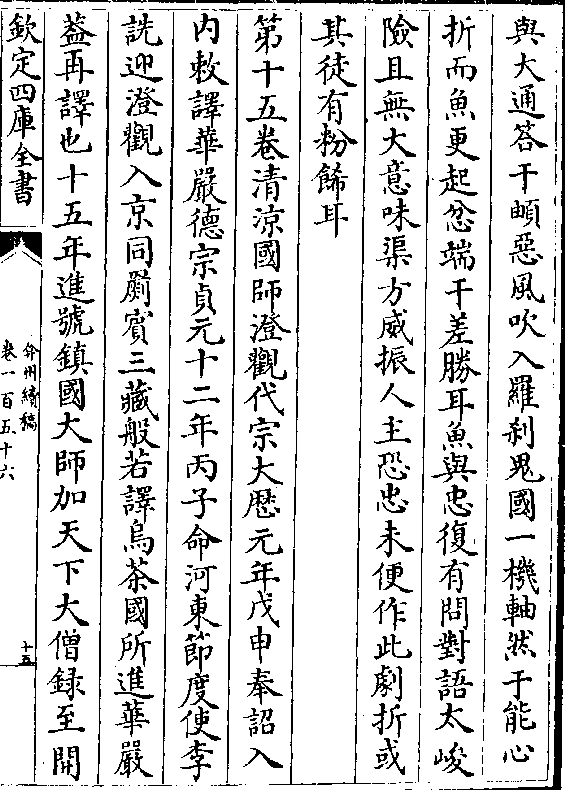 與大通答于頔惡風吹入羅刹鬼國一機軸然于能心
折而魚更起忿端于差勝耳魚與忠復有問對語太峻
險且無大意味渠方威振人主恐忠未便作此劇折或
其徒有粉餙耳
第十五卷清涼國師澄觀代宗大厯元年戊申奉詔入
内敕譯華嚴德宗貞元十二年丙子命河東節度使李
詵迎澄觀入京同罽賓三藏般若譯烏茶國所進華嚴
葢再譯也十五年進號鎮國大師加天下大僧録至開
欽定四庫全書
弇州續稿
卷一百五十六
十五